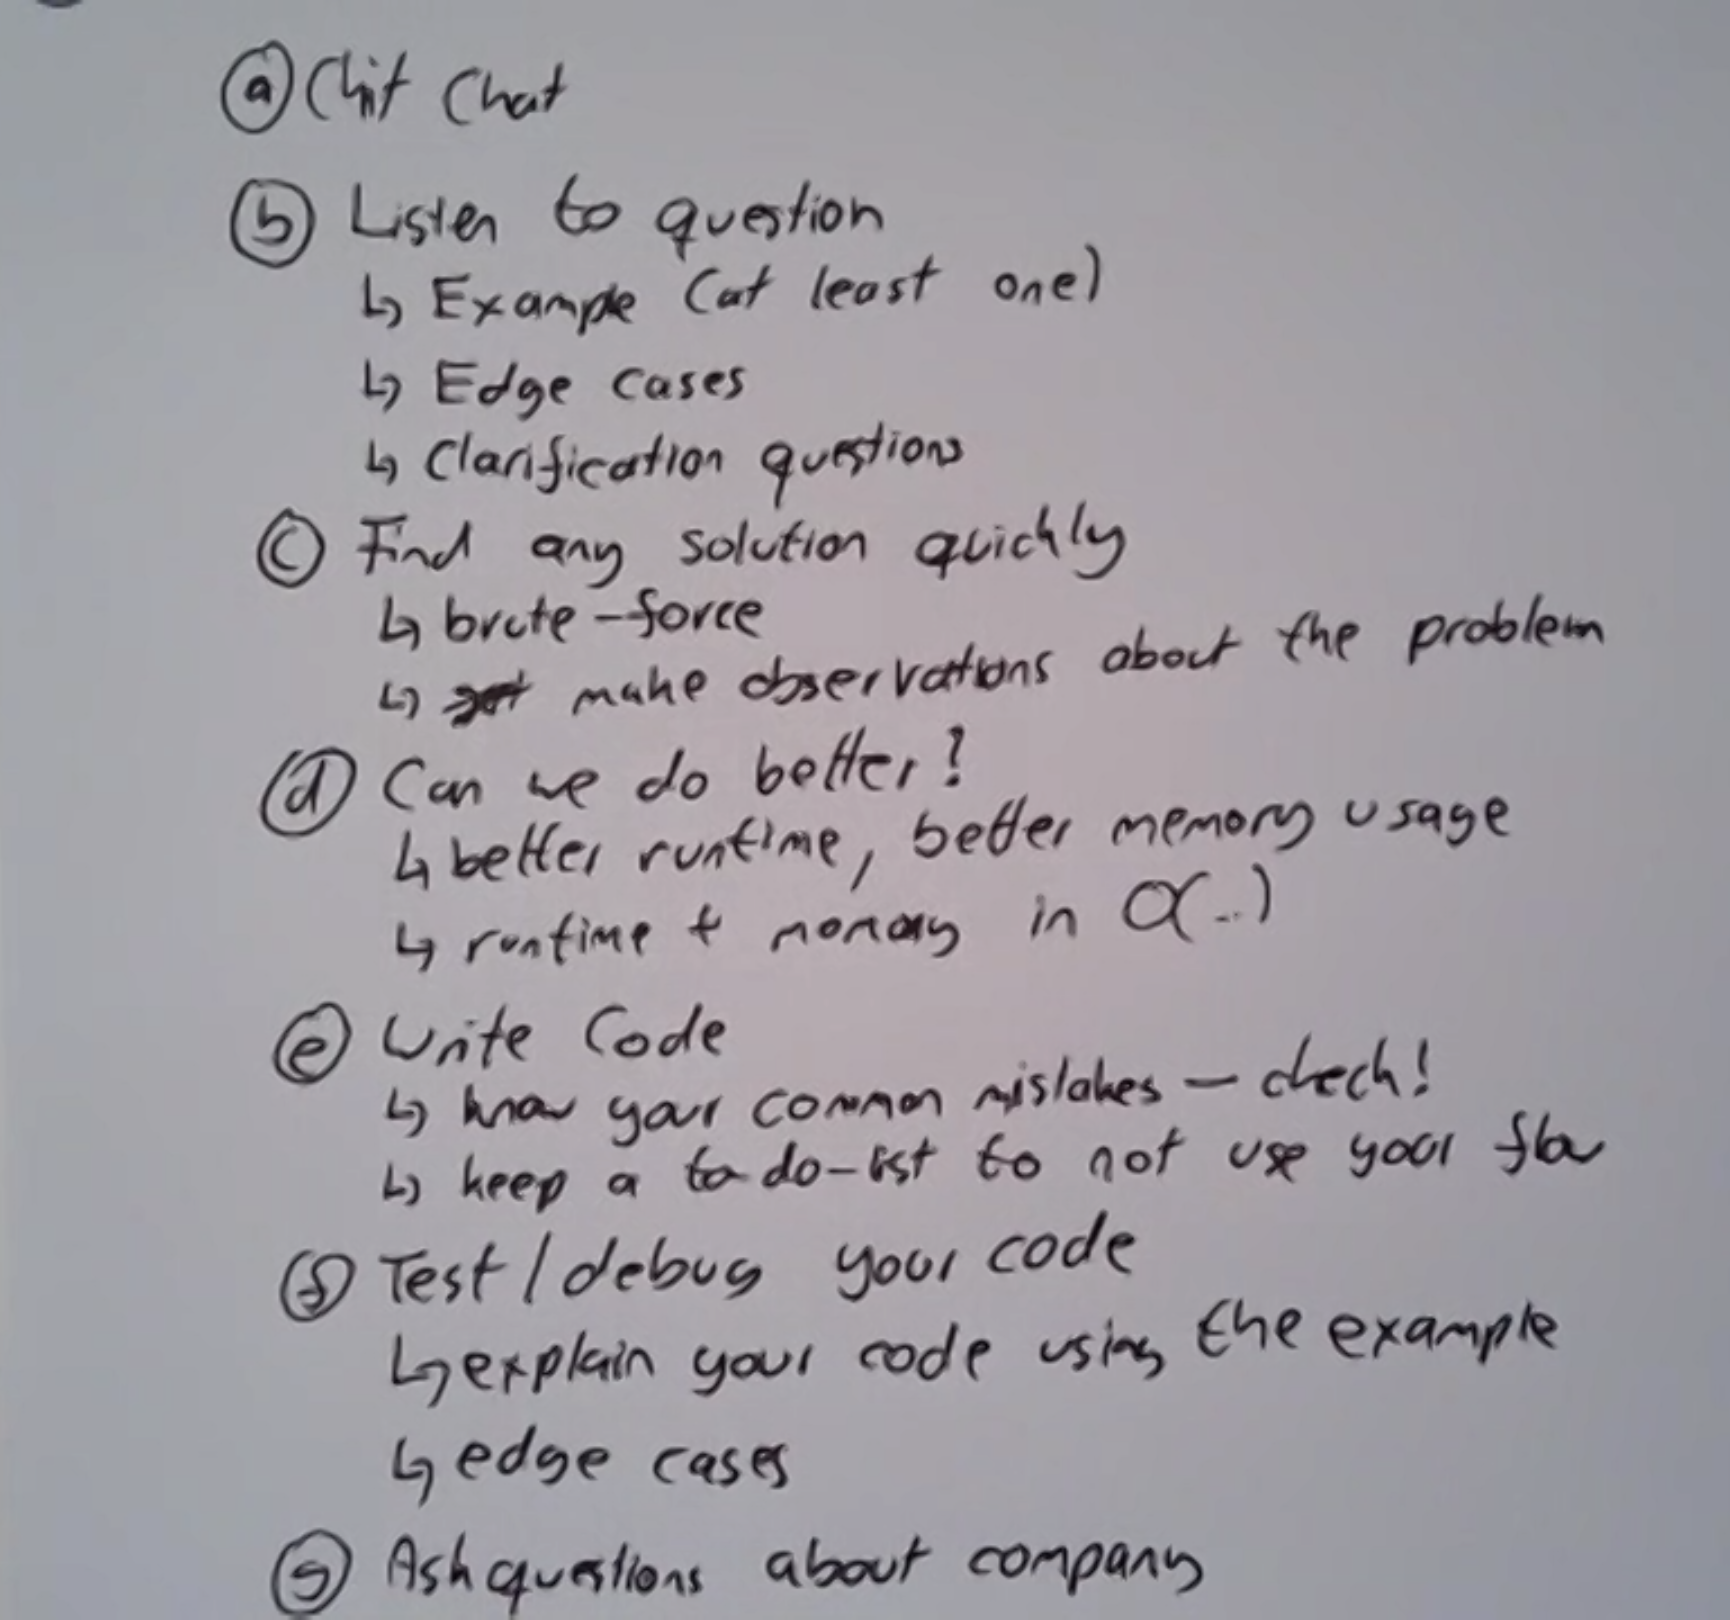 ⓐ Chit Chat
ⓑ Listen to question
↳ Example (at least one)
↳ Edge cases
↳ Clarification questions
ⓒ Find any solution quickly
↳ brute-force
↳ make observations about the problem
ⓓ Can we do better?
↳ better runtime, better memory usage
↳ runtime + memory in O(..)
ⓔ Write Code
↳ know your common mistakes - check!
↳ keep a to do-list to not use your flow
ⓕ Test/debug your code
↳ explain your code using the example
↳ edge cases
ⓖ Ask questions about company